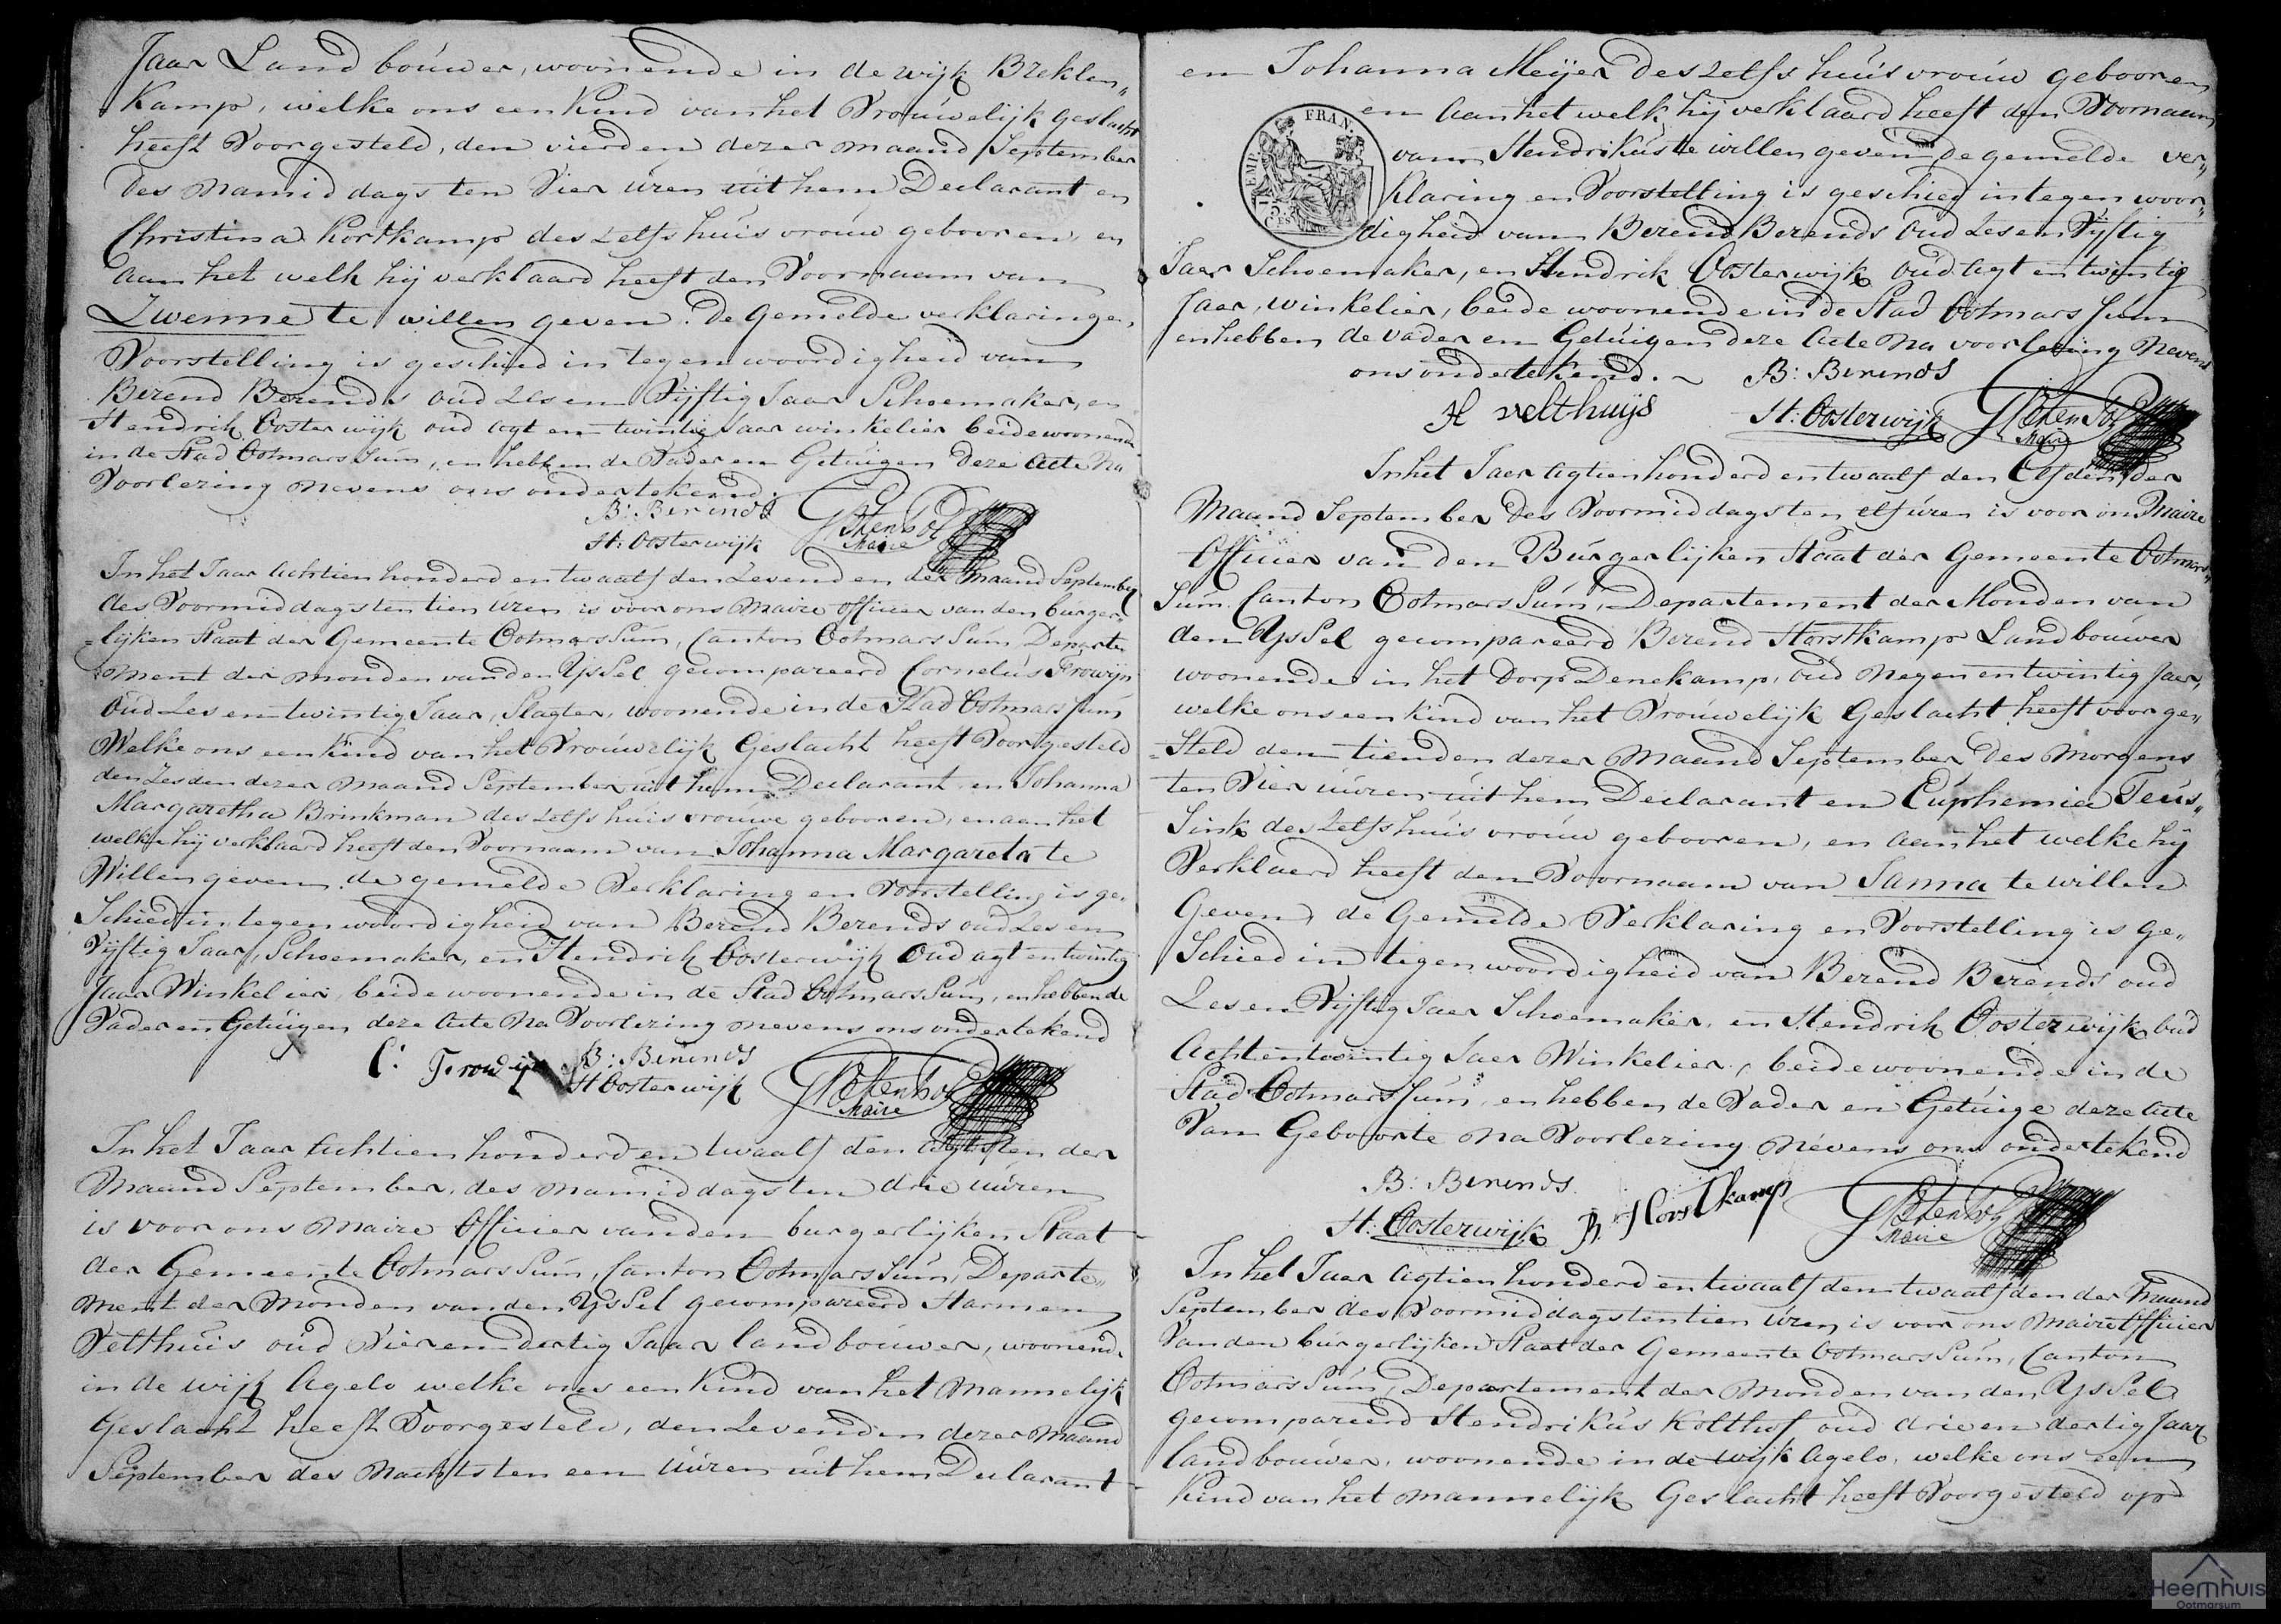 Jaar Landbouwer, woonende in de wijk Breklen„
kamp, welke ons een Kind van het Vrouwelijk geslacht
heeft Voorgesteld, den vierden dezer maand September
des namiddags ten Vier uren uit hem Declarant en
Christina Kortkamp deszelfs huisvrouw gebooren, en
aan het welk hij verklaard heeft den Voornaam van
Zwenne te willen geven. De Gemelde verklaring en
Voorstelling is geschied in tegenwoordigheid van
Berend Berends oud Zes en Vijftig Jaar Schoemaker, en
Hendrik Oosterwijk oud agt en twintig Jaar winkelier beide woonende
in de Stad Ootmarssum, en hebben de Vader en Getuigen deze Acte na
Voorlezing nevens ons ondertekend.
B: Berends
H: Oosterwijk
Maire
In het Jaar Achtien honderd en twaalf den Zevenden der Maand September
des Voormiddags ten tien uren is voor ons Maire officier van den burger„
lijken Staat der Gemeente Ootmarssum, Canton Ootmarssum, Departe„
ment der monden van den Yssel gecompareerd Cornelus Frowijn
Oud Zes en twintig Jaar, Slagter, woonende in de Stad Ootmarssum
Welke ons een kind van het Vrouwelijk Geslacht heeft Voorgesteld
den Zesden dezer maand September uit hem Declarant en Johanna
Margaretha Brinkman deszelfs huisvrouwe gebooren, en aan het
welke hij verklaard heeft den Voornaam van Johanna Margareta te
Willen geven. de gemelde Verklaring en Voorstelling is ge„
Schied in tegenwoordigheid van Berend Berends oud Zes en
Vijftig Jaar, Schoemaker, en Hendrik Oosterwijk Oud agt en twintig
Jaar Winkelier, beide woonende in de Stad Ootmarssum, en hebben de
Vader en Getuigen deze Acte na Voorlezing nevens ons ondertekend
C: Frowijn B: Berends
H Oosterwijk
Maire
In het Jaar Achtien honderd en twaalf den agtsten der
Maand September, des namiddags ten drie uuren
is voor ons Maire Officier van den burgerlijken Staat
der Gemeente Ootmarssum, Canton Ootmarssum, Departe„
ment der Monden van den Yssel gecompareerd Harmen
Velthuis oud Vier en dertig Jaar landbouwer, woonend.
in de wijk Agelo welke ons een Kind van het Mannelijk
Geslacht heeft Voorgesteld, den Zevenden dezer maand
September des Nachts ten een uuren uit hem Declarant
en Johanna Meijer deszelfs huisvrouw gebooren
FRAN.
EMP.
75
en aan het welk hij verklaard heeft den Voornaam
van Hendrikus te willen geven de gemelde ver„
klaring en Voorstelling is geschied in tegenwoor„
digheid van Berend Berends Oud Zes en Vijftig
Jaer Schoemaker, en Hendrik Oosterwijk oud agt en twintig
Jaer, winkelier, beide woonende in de Stad Ootmarssum
en hebben de vader en Getuigen deze Acte na voorlezing Nevens
ons ondertekend. B: Berends
H velthuijs H: Oosterwijk
Maire
In het Jaer Agtien honderd en twaalf den Elfden der
Maand September des Voormiddags ten elf uren is voor ons Maire
Officier van den Burgerlijken Staat der Gemeente Ootmars„
sum Canton Ootmarssum, Departement der Monden van
den Yssel gecompareerd Berend Horstkamp Landbouwer
woonende in het Dorp Denekamp, oud Negen en twintig Jaer,
welke ons een kind van het Vrouwelijk Geslacht heeft voorge„
steld den tienden dezer Maand September des Morgens
ten Vier uuren uit hem Declarant en Euphemia Teus„
sink deszelfs huisvrouw gebooren, en aan het welke hij
Verklaerd heeft den Voornaam van Janna te willen
Geven, de Gemelde Verklaring en Voorstelling is Ge„
Schied in tegenwoordigheid van Berend Berends oud
Zes en Vijftig Jaer Schoemaker, en Hendrik Oosterwijk oud
Acht en twintig Jaer Winkelier, beide woonende in de
Stad Ootmarssum, en hebben de Vader en Getuige deze Acte
Van Geboorte na Voorlezing nevens ons ondertekend
B: Berends
H: Oosterwijk B. Horstkamp
Maire
In het Jaer Agtien honderd en twaalf den twaalfden der Maand
September des Voormiddags ten tien uren is voor ons Maire Officier
Van den burgerlijken Staat der Gemeente Ootmarssum, Canton
Ootmarssum, Departement der Monden van den Yssel
gecompareerd Hendrikus Kolthof oud drie en dertig Jaar
landbouwer, woonende in de wijk Agelo, welke ons een
Kind van het mannelijk Geslacht heeft Voorgesteld op
Heemhuis
Ootmarsum